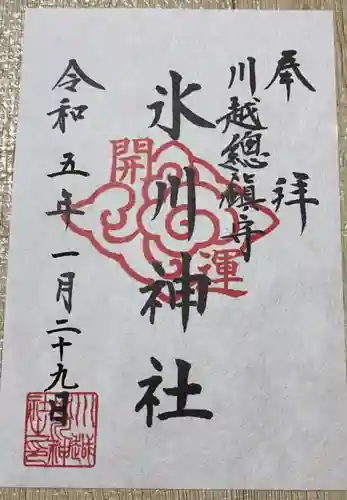 奉拝
川越總鎮守
氷川神社
開運
令和五年一月二十九日
川越氷川神社之印